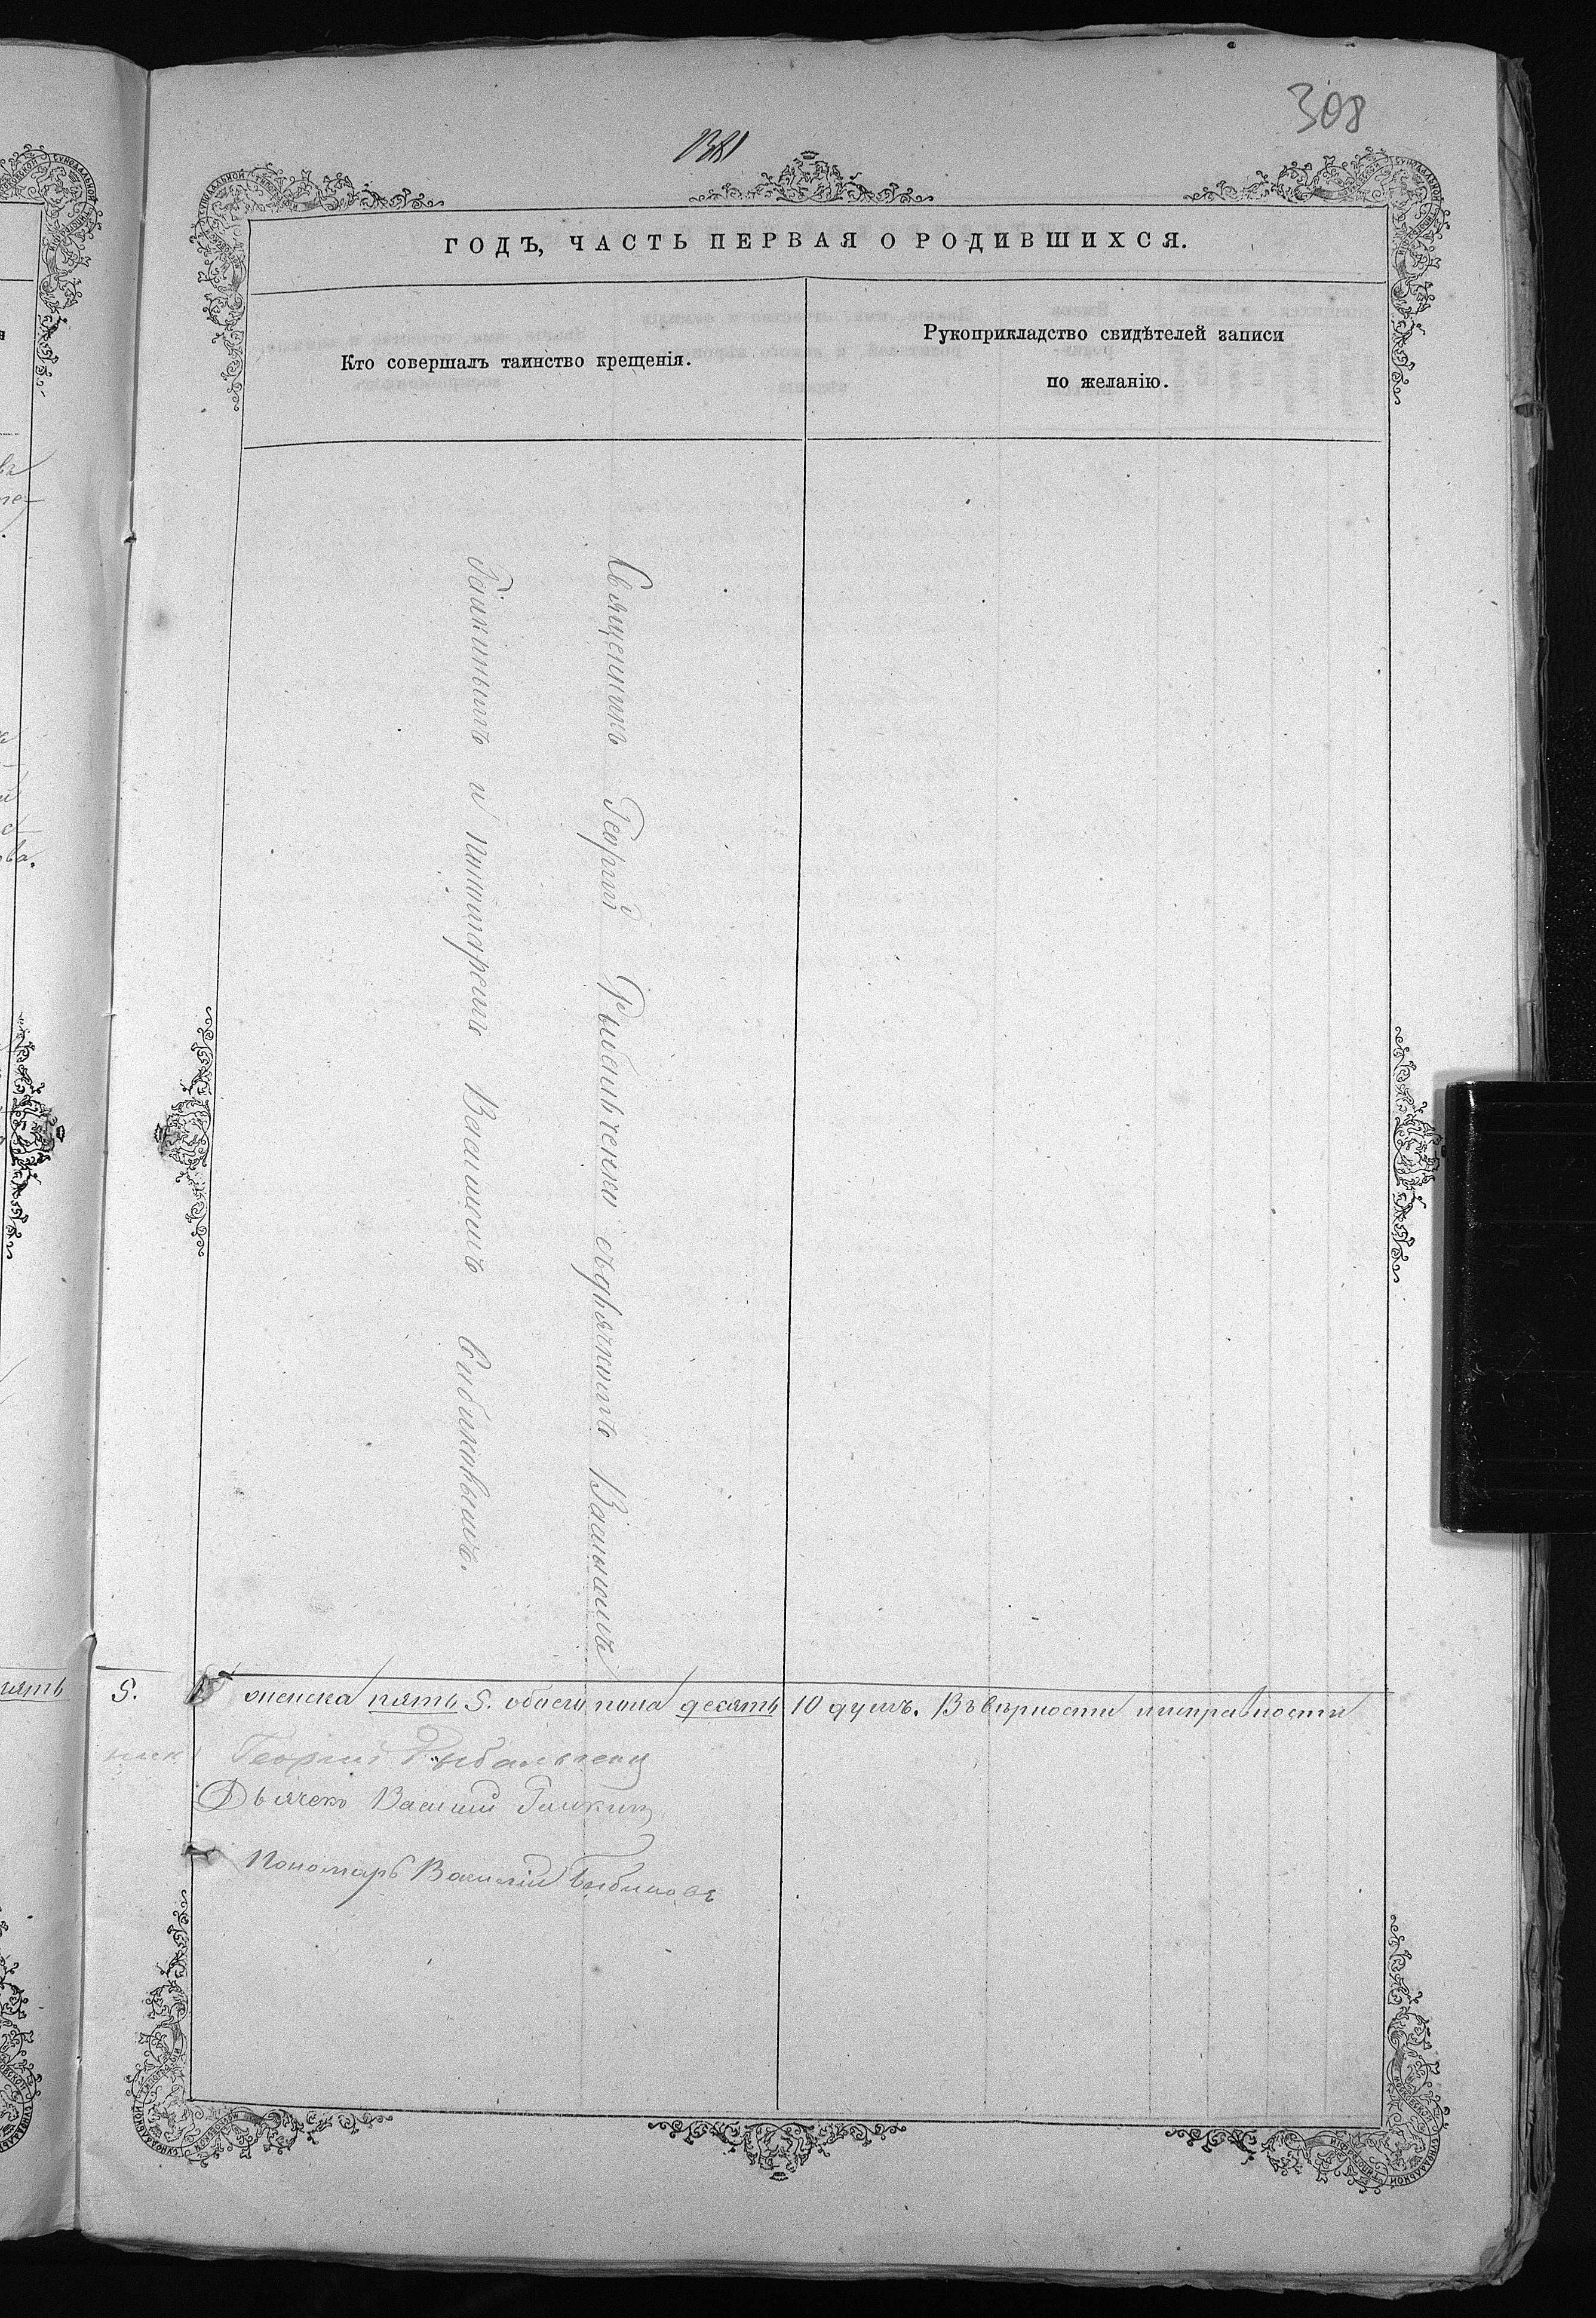 308
ГОДЪ, ЧАСТЬ ПЕРВАЯ О РОДИВШИХСЯ.
Кто совершалъ таинство крещенія.
Рукоприкладство свидѣтелей записи
по желанію.
Священникъ Георгій Рыбальченко съ дьячкомъ Васильемъ
Галкинымъ и пономаремъ Васильемъ Бибиковымъ.
пять 5. женска пять 5. обоего пола десять 10 душъ. Въ вѣрности и исправности
Георгій Рыбальченко
Дьячекъ Василій Галкинъ
Пономарь Василій Бибиковъ